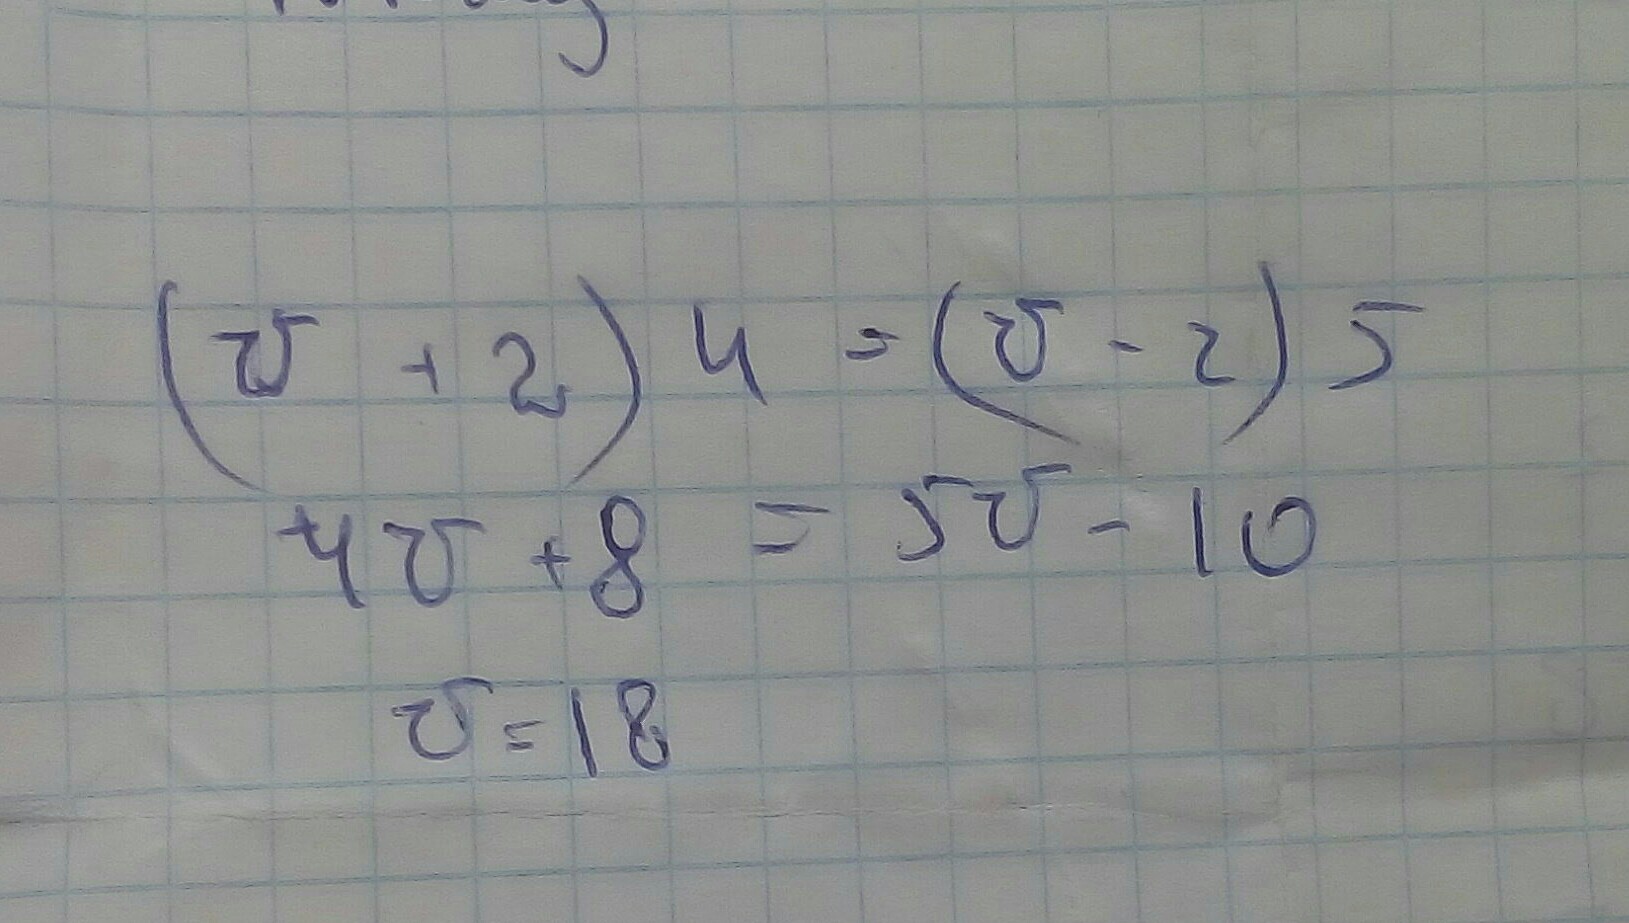 (v + 2) 4 = (v - 2) 5
4v + 8 = 5v - 10
v = 18